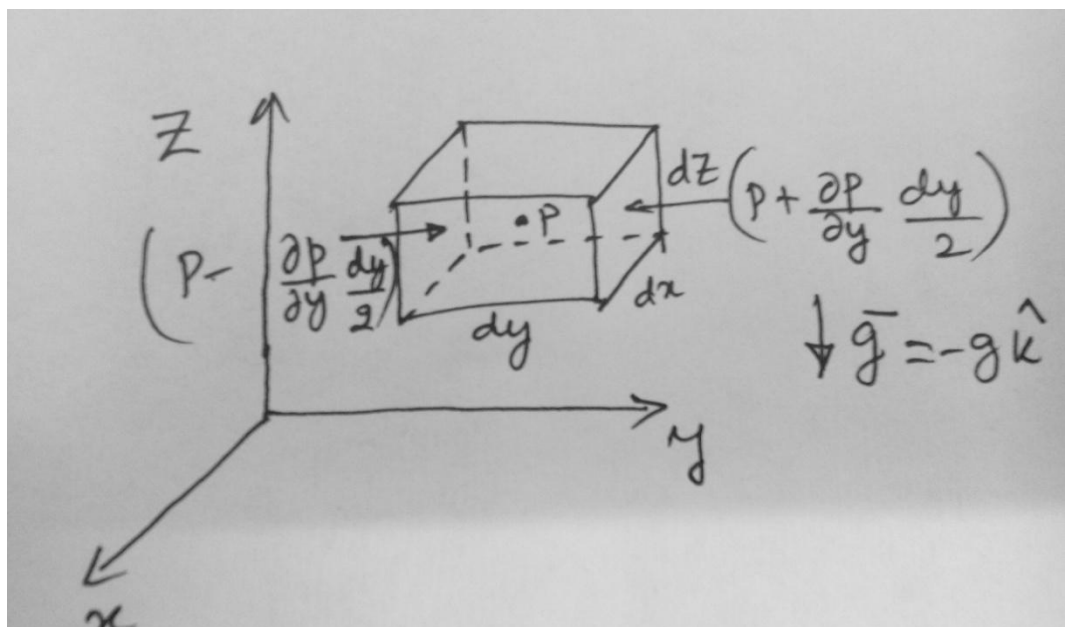 Z
dz (P + ∂P/∂y dy/2)
• P
(P - ∂P/∂y dy/2)
dx
dy
↓ g̅ = -g k̂
y
x